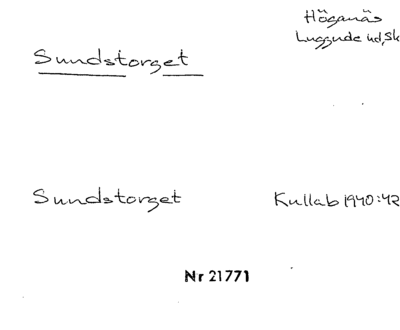 Höganäs
Luggude hd, Sk
Sundstorget
Sundstorget Kullab 1940:42
Nr 21771